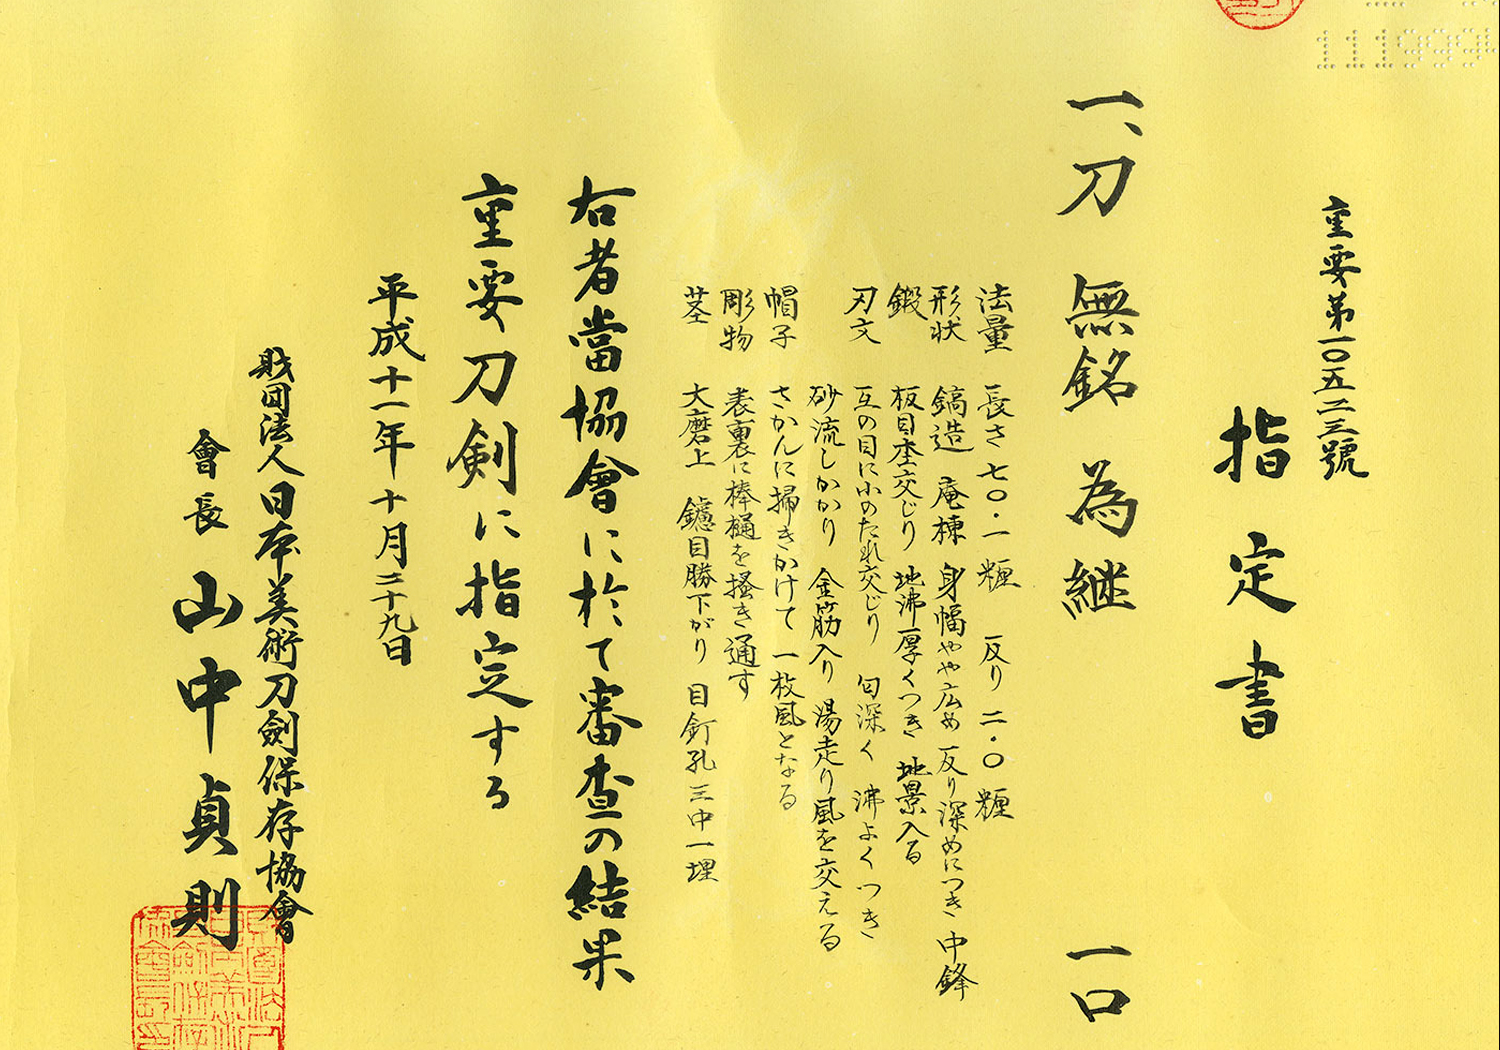 111999
重要第一〇五二三號
指定書
一、刀 無銘 為継 一口
法量 長さ 七〇・一糎 反り 二・〇糎
形状 鎬造 庵棟 身幅やや広め 反り深めにつき 中鋒
鍛 板目杢交じり 地沸厚くつき 地景入る
刃文 互の目に小のたれ交じり 匂深く 沸よくつき
砂流しかかり 金筋入り 湯走り風を交える
帽子 さかんに掃きかけて 一枚風となる
彫物 表裏に棒樋を掻き通す
茎 大磨上 鑢目勝下がり 目釘孔三中一埋
右者當協會に於て審査の結果
重要刀剣に指定する
平成十一年十月二十九日
財団法人日本美術刀劍保存協會
會長 山中貞則